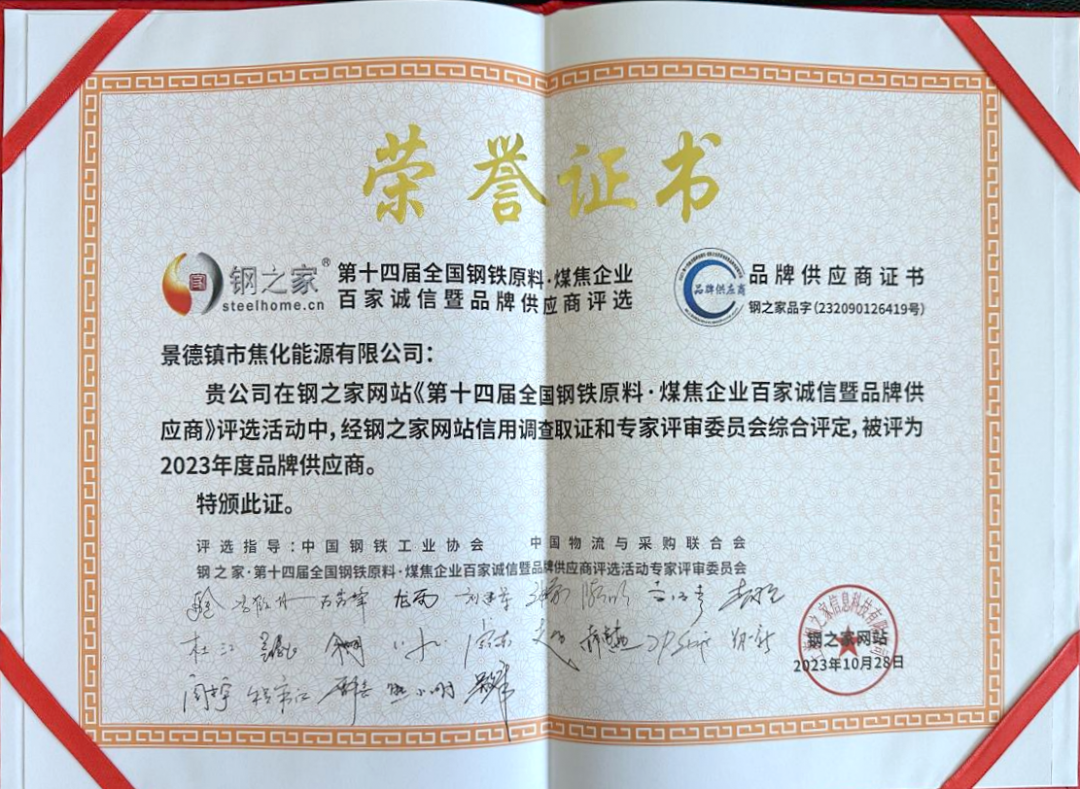 荣誉证书
钢之家®
steelhome.cn
第十四届全国钢铁原料·煤焦企业
百家诚信暨品牌供应商评选
品牌供应商
品牌供应商证书
钢之家品字(232090126419号)
景德镇市焦化能源有限公司：
贵公司在钢之家网站《第十四届全国钢铁原料·煤焦企业百家诚信暨品牌供
应商》评选活动中，经钢之家网站信用调查取证和专家评审委员会综合评定，被评为
2023年度品牌供应商。
特颁此证。
评选指导：中国钢铁工业协会 中国物流与采购联合会
钢之家·第十四届全国钢铁原料·煤焦企业百家诚信暨品牌供应商评选活动专家评审委员会
杜江
钢之家网站
2023年10月28日